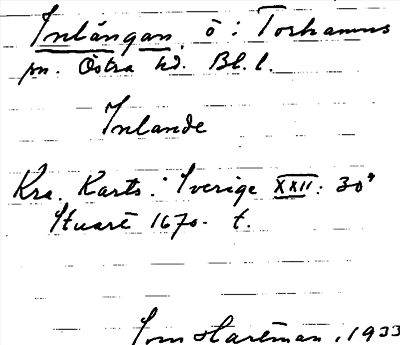 Inlångan, ö i Torhamns
sn. Östra hd. Bl. l.
Inlande
Kra. Karts. Sverige XXII: 30ª
Stuart 1670- t.
Hartman, 1933